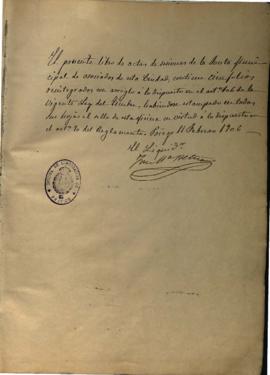 El presente libro de actas de sesiones de la Junta Muni-
cipal de asociados de esta Ciudad, contiene cien folios
reintegrados con arreglo á lo dispuesto en el art.
vigente Ley del Timbre, habiéndose estampado en todas
sus hojas el sello de esta oficina en virtud á lo dispuesto en
el art. del Reglamento. Priego 11 Febrero 1906
El Liquid.